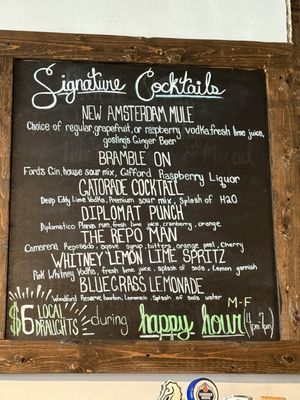 Signature Cocktails
NEW AMSTERDAM MULE
Choice of regular, grapefruit, or raspberry vodka, fresh lime juice,
goslings Ginger Beer
BRAMBLE ON
Fords Gin, house sour mix, Giffard Raspberry Liquor
GATORADE COCKTAIL
Deep Eddy Lime Vodka, Premium sour mix, Splash of H2O
DIPLOMAT PUNCH
Diplomatico Planas rum, fresh lime juice, cranberry, orange
THE REPO MAN
Camarena Reposado, agave syrup, bitters, orange peel, cherry
WHITNEY LEMON LIME SPRITZ
Pink Whitney Vodka, fresh lime juice, splash of soda, Lemon garnish
BLUEGRASS LEMONADE
Woodford Reserve bourbon, Lemonade, Splash of soda water
$6 LOCAL DRAUGHTS during happy hour M-F (4pm-7pm)